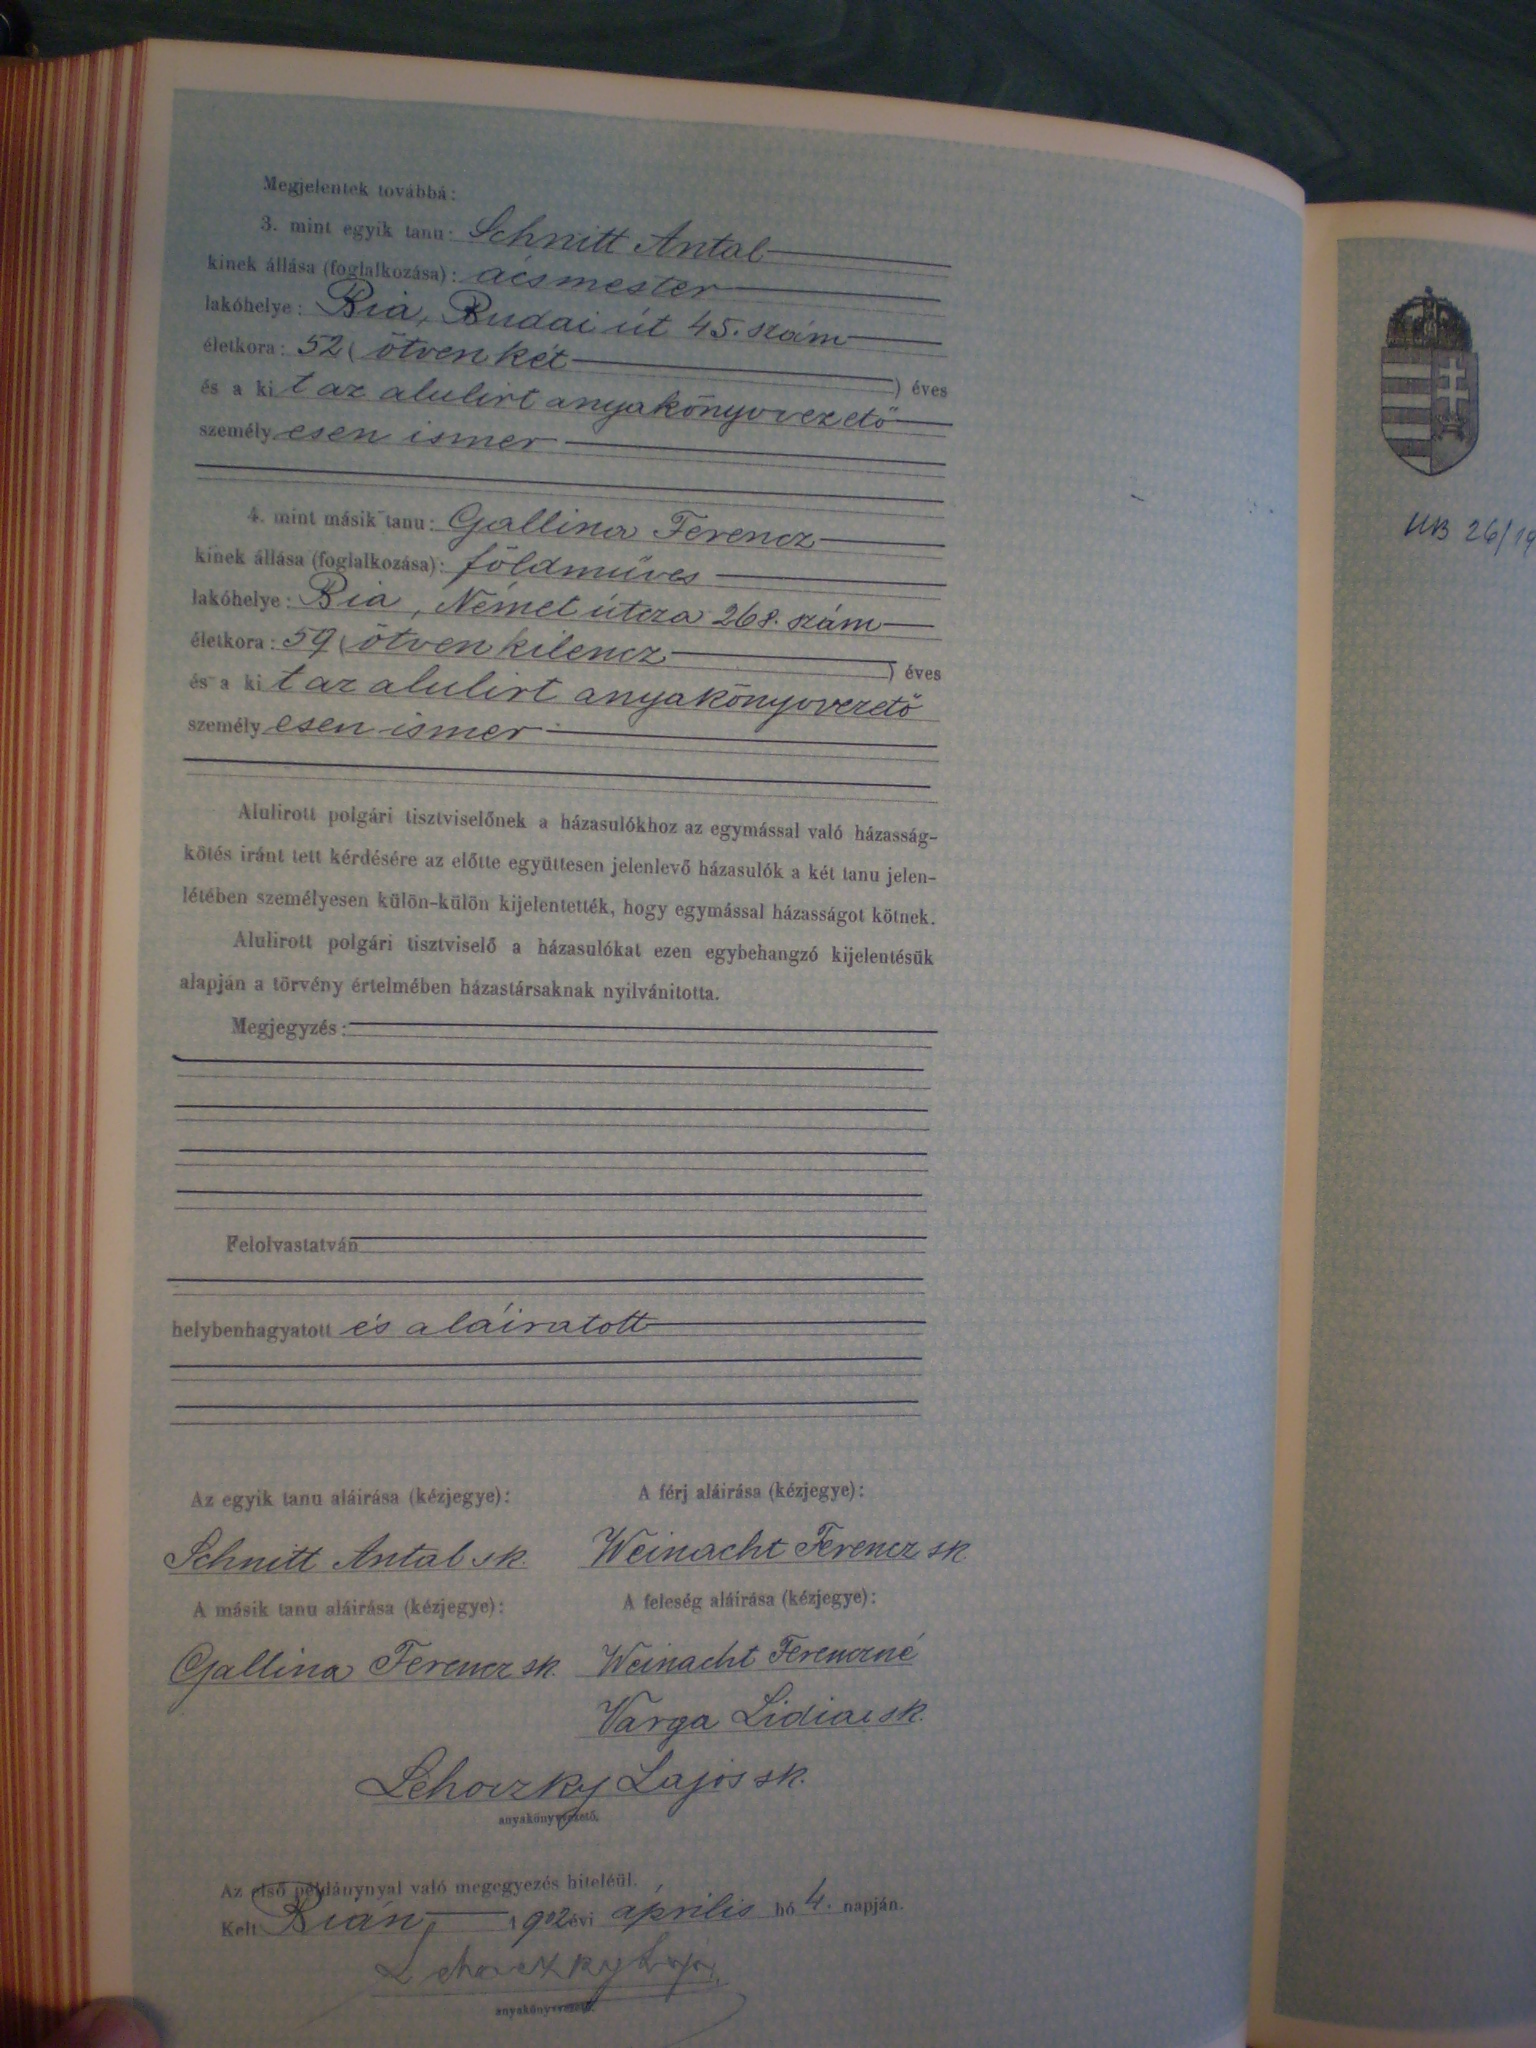 Megjelentek továbbá:
3. mint egyik tanu: Schnitt Antal
kinek állása (foglalkozása): ácsmester
lakóhelye: Bia, Budai út 45. szám
életkora: 52 (ötvenkét) éves
és a kit az alulirt anyakönyvvezető
személyesen ismer
4. mint másik tanu: Gallina Ferencz
kinek állása (foglalkozása): földmüves
lakóhelye: Bia, Német útcza 268. szám
életkora: 59 (ötvenkilencz) éves
és a kit az alulirt anyakönyvvezető
személyesen ismer
Alulirott polgári tisztviselőnek a házasulókhoz az egymással való házasság-
kötés iránt tett kérdésére az előtte együttesen jelenlevő házasulók a két tanu jelen-
létében személyesen külön-külön kijelentették, hogy egymással házasságot kötnek.
Alulirott polgári tisztviselő a házasulókat ezen egybehangzó kijelentésük
alapján a törvény értelmében házastársaknak nyilvánitotta.
Megjegyzés:
Felolvastatván
helybenhagyatott és aláiratott
Az egyik tanu aláirása (kézjegye): A férj aláirása (kézjegye):
Schnitt Antal sk. Weinacht Ferencz sk.
A másik tanu aláirása (kézjegye): A feleség aláirása (kézjegye):
Gallina Ferencz sk. Weinacht Ferenczné
Varga Lidia sk.
Lehoczky Lajos sk.
anyakönyvvezető.
Az első példánynyal való megegyezés hiteléül.
Kelt Bián 1902 évi április hó 4. napján.
Lehoczky Lajos
anyakönyvvezető.
UB 26/19